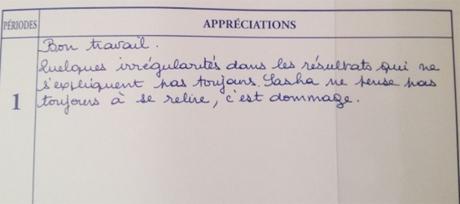 PÉRIODES APPRÉCIATIONS
Bon travail.
Quelques irrégularités dans les résultats qui ne
s'expliquent pas toujours. Sasha ne pense pas
1
toujours à se relire, c'est dommage.